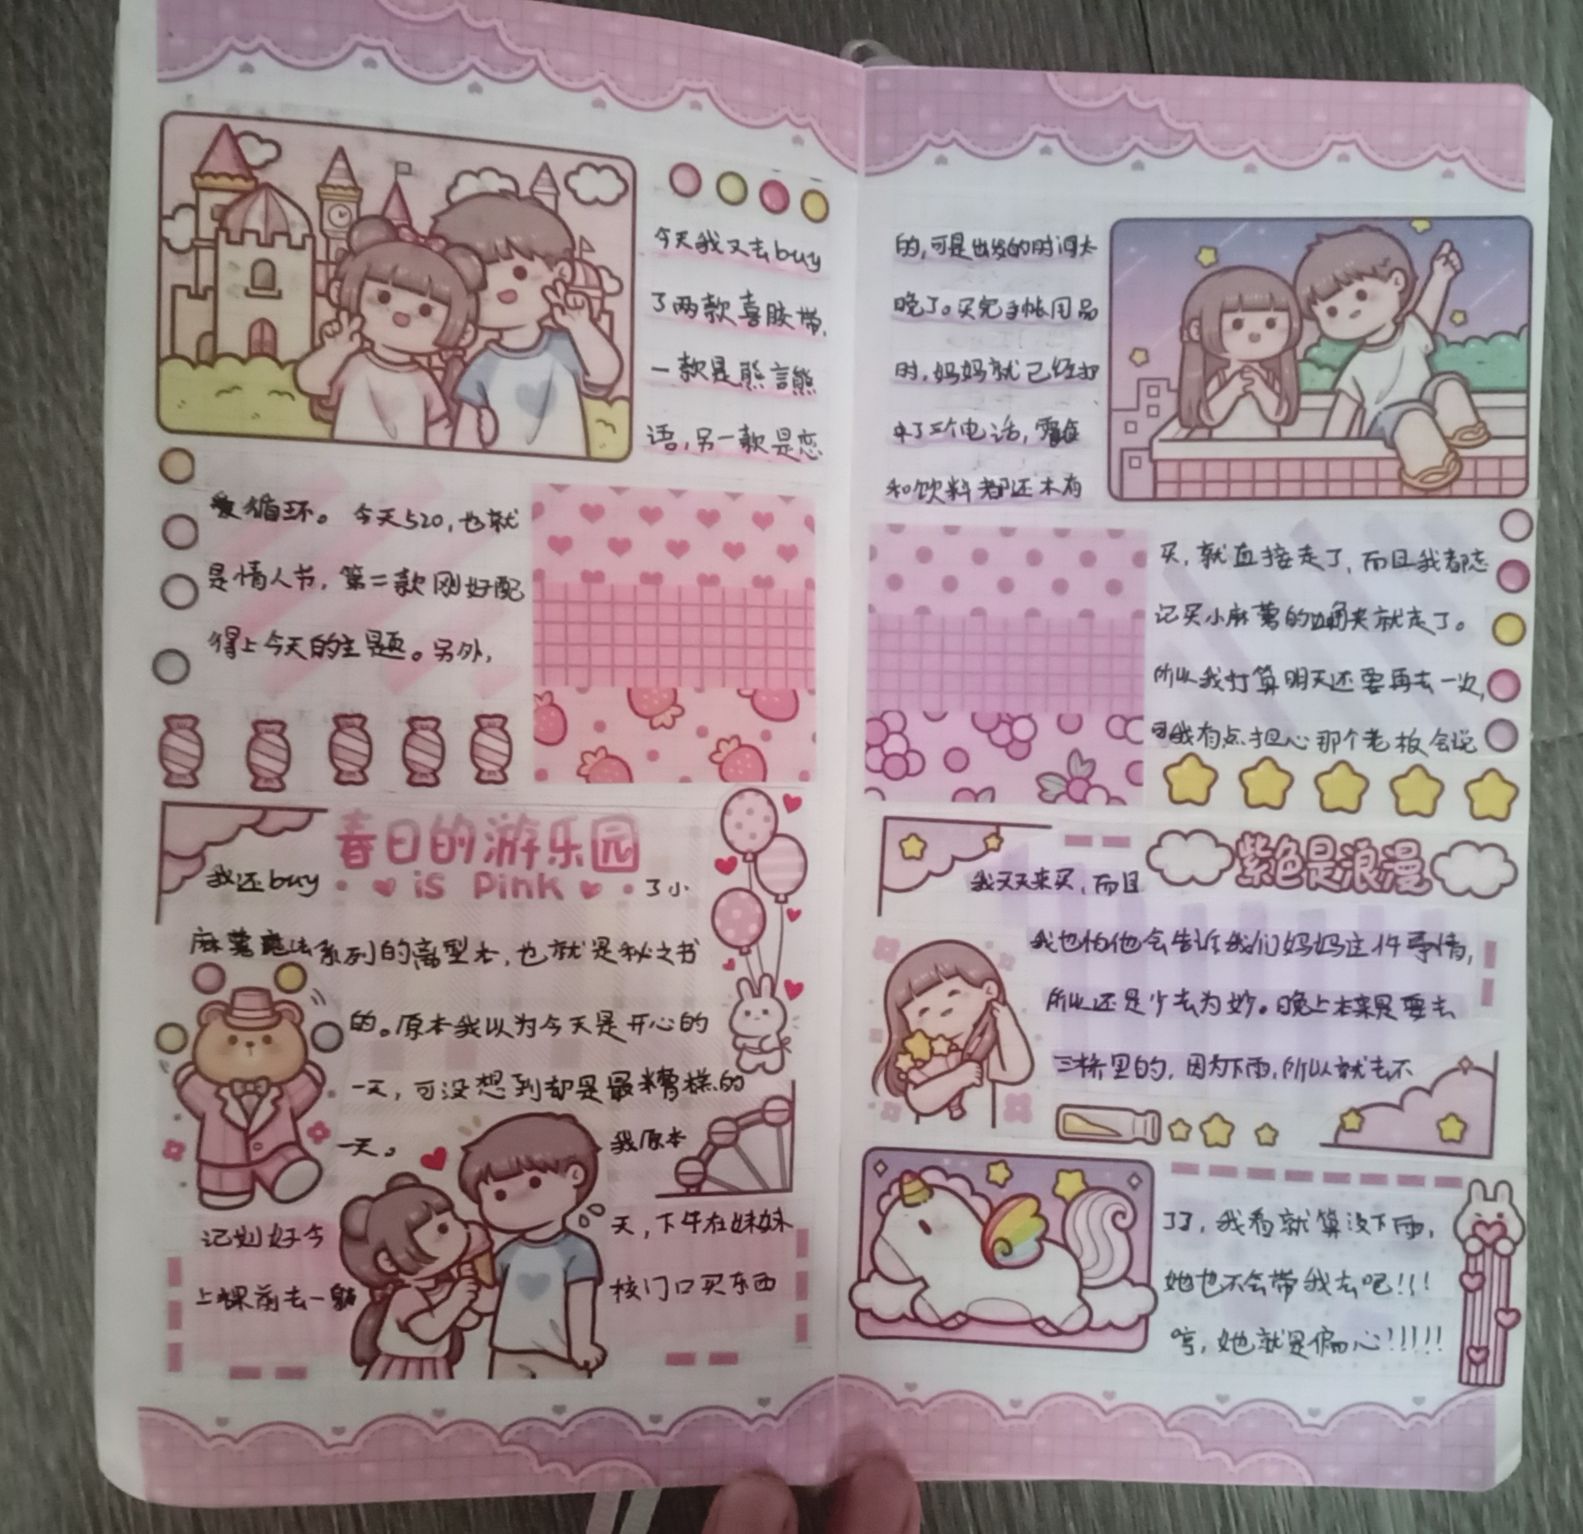 今天我又去buy
了两款喜胶带,
一款是熊言熊
语,另一款是恋
爱循环。今天520,也就
是情人节,第二款刚好配
得上今天的主题。另外,
春日的游乐园
is Pink
我还buy 了小
麻薯魔法系列的离型本,也就是秘之书
的。原本我以为今天是开心的
一天,可没想到却是最糟糕的
一天。 我原本
记划好今 天,下午在妹妹
上课前去一躺 校门口买东西
的,可是出发的时间太
晚了。买完手帐用品
时,妈妈就已经打
来了三个电话,零食
和饮料都还木有
买,就直接走了,而且我都忘
记买小麻薯的 夹就走了。
所以我打算明天还要再去一次,
我有点担心那个老板会说
紫色是浪漫
我天天来买,而且
我也怕他会告诉我们妈妈这件事情,
所以还是少去为妙。晚上本来是要去
三桥里的,因为下雨,所以就去不
了了,我看就算没下雨,
她也不会带我去吧!!!
哼,她就是偏心!!!!!